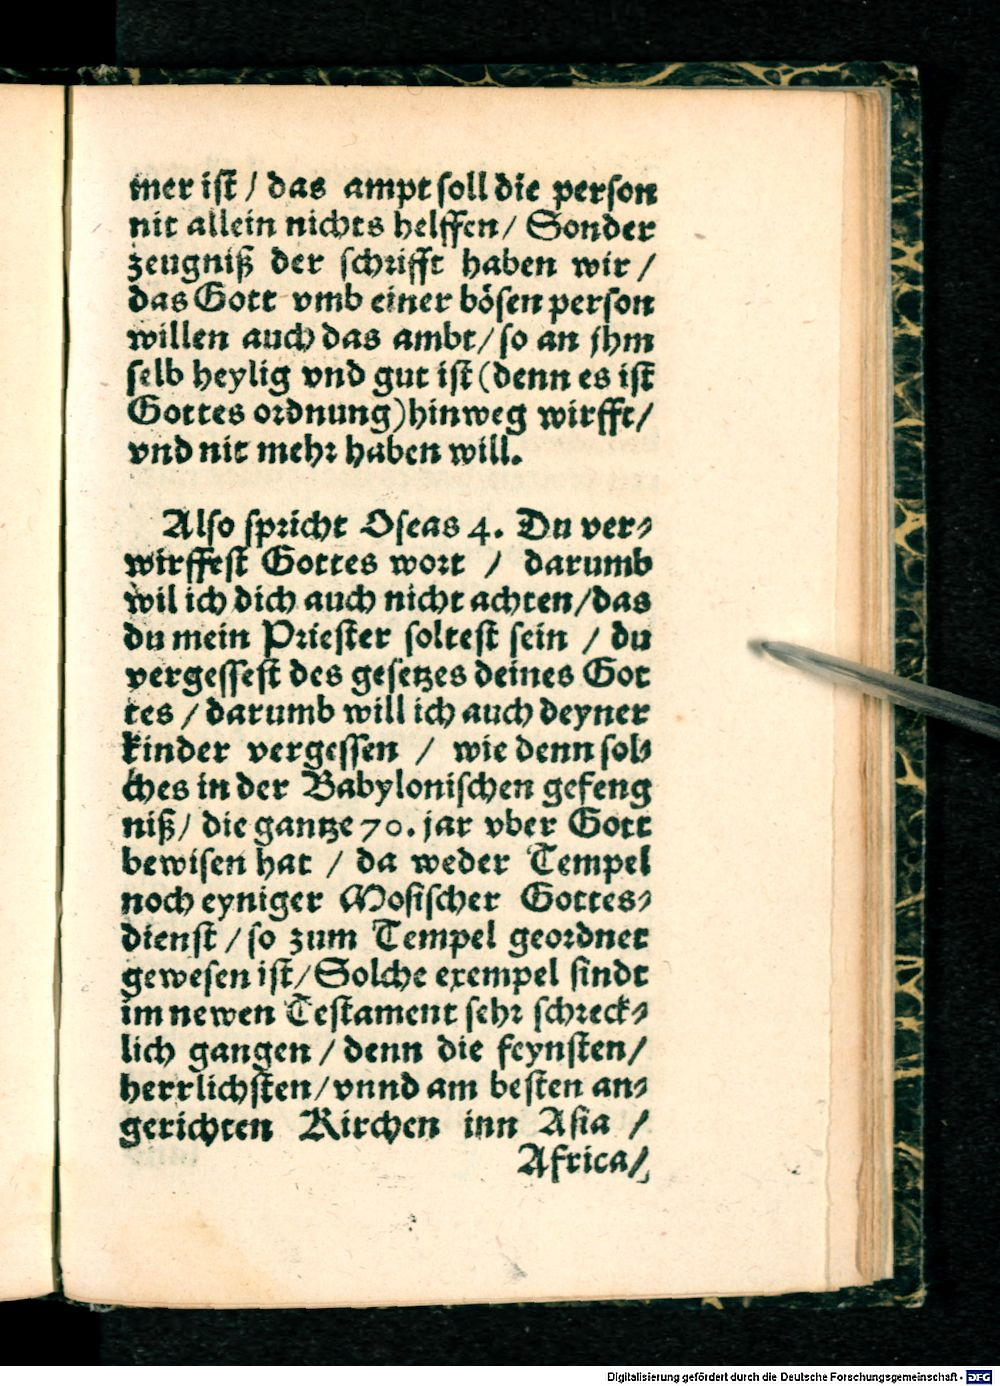 mer ist / das ampt soll die person
nit allein nichts helffen / Sonder
zeugniß der schrifft haben wir /
das Gott vmb einer bösen person
willen auch das ambt / so an jhm
selb heylig vnd gut ist (denn es ist
Gottes ordnung) hinweg wirfft /
vnd nit mehr haben will.
Also spricht Oseas 4. Du ver-
wirffest Gottes wort / darumb
wil ich dich auch nicht achten / das
du mein Priester soltest sein / du
vergessest des gesetzes deines Got
tes / darumb will ich auch deyner
kinder vergessen / wie denn sol-
ches in der Babylonischen gefeng
niß / die gantze 70. jar vber Gott
bewisen hat / da weder Tempel
noch eyniger Mosischer Gottes-
dienst / so zum Tempel geordnet
gewesen ist / Solche exempel sindt
im newen Testament sehr schreck-
lich gangen / denn die feynsten /
herrlichsten / vnnd am besten an-
gerichten Kirchen inn Asia /
Africa /
Digitalisierung gefördert durch die Deutsche Forschungsgemeinschaft - DFG